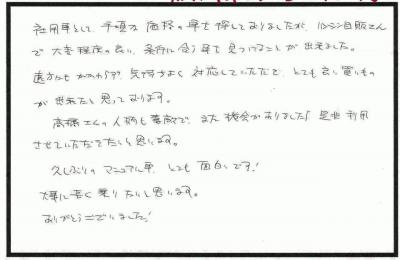 社用車として、手頃な価格の車を探しておりましたが、自販さん
で大変程度の良い、条件に合う車を見つけることが出来ました。
遠方にもかかわらず、気持ちよく対応していただいて、とても良い買いもの
が出来たと思っております。
高橋さんの人柄も素敵で、また機会がありましたら是非利用
させていただきたいと思います。
久しぶりのマニュアル車、とても面白いです!
大事に長く乗りたいと思います。
ありがとうございました!